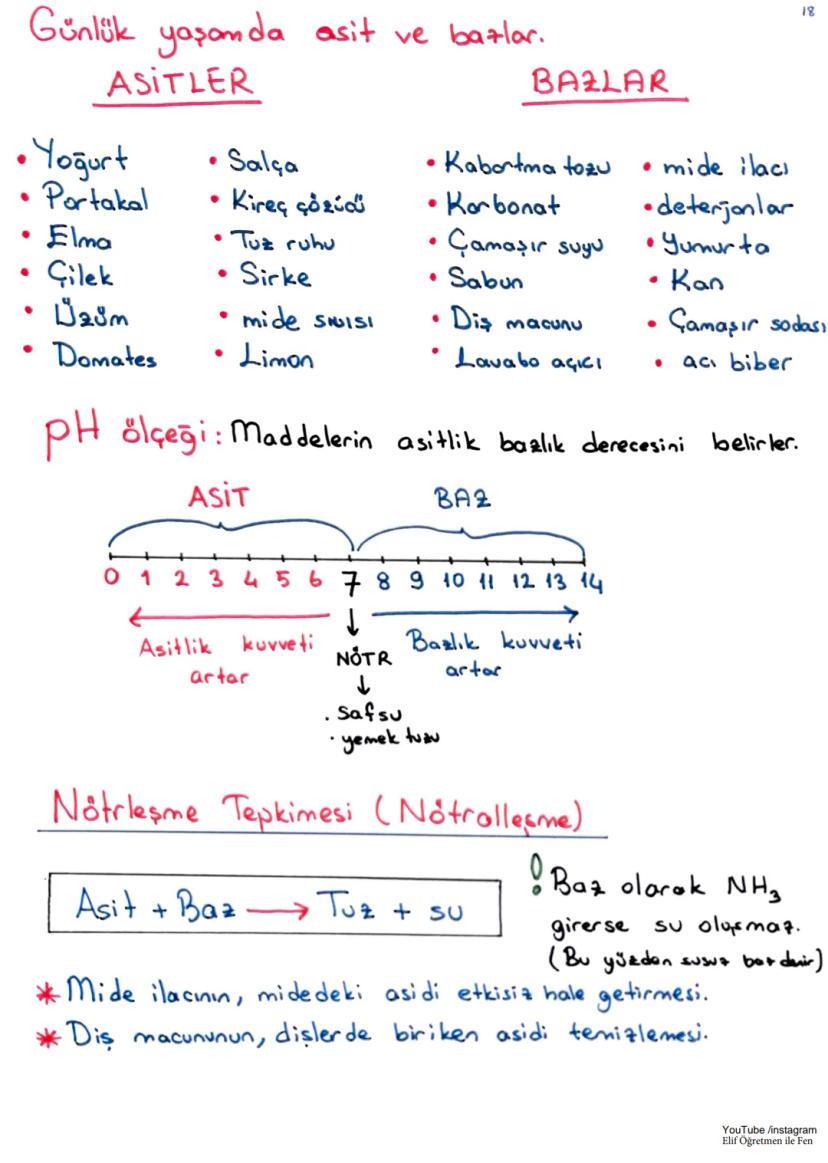 18
Günlük yaşamda asit ve bazlar.
ASİTLER
BAZLAR
• Yoğurt
• Portakal
• Elma
• Çilek
• Üzüm
• Domates
• Salça
• Kireç çözücü
• Tuz ruhu
• Sirke
• mide sıvısı
• Limon
• Kabartma tozu
• Karbonat
• Çamaşır suyu
• Sabun
• Diş macunu
• Lavabo açıcı
• mide ilacı
• deterjanlar
• Yumurta
• Kan
• Çamaşır sodası
• acı biber
pH ölçeği: Maddelerin asitlik bazlık derecesini belirler.
ASİT
BAZ
0 1 2 3 4 5 6 7 8 9 10 11 12 13 14
Asitlik kuvveti
artar
Bazlık kuvveti
artar
NÖTR
. Saf su
. yemek tuzu
Nötrleşme Tepkimesi (Nötralleşme)
Asit + Baz → Tuz + su
! Baz olarak NH₃
girerse su oluşmaz.
(Bu yüzden susuz baz denir)
* Mide ilacının, midedeki asidi etkisiz hale getirmesi.
* Diş macununun, dişlerde biriken asidi temizlemesi.
YouTube /instagram
Elif Öğretmen ile Fen